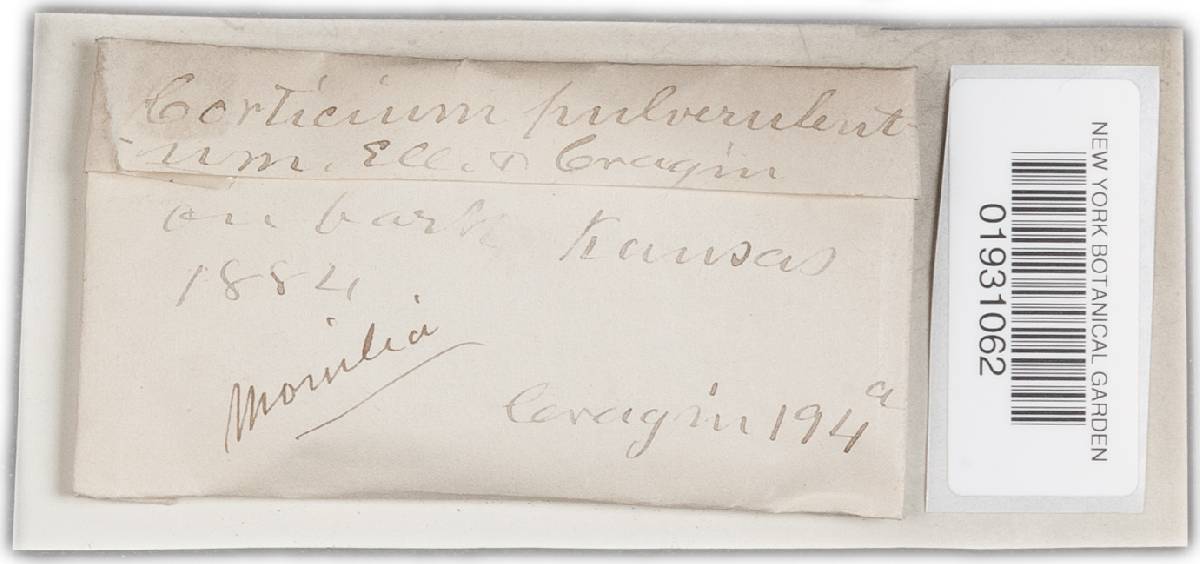 Corticium pulverulent-
-um. Ell. & Cragin
on bark Kansas
1884
Monilia
Cragin 194a
NEW YORK BOTANICAL GARDEN
01931062